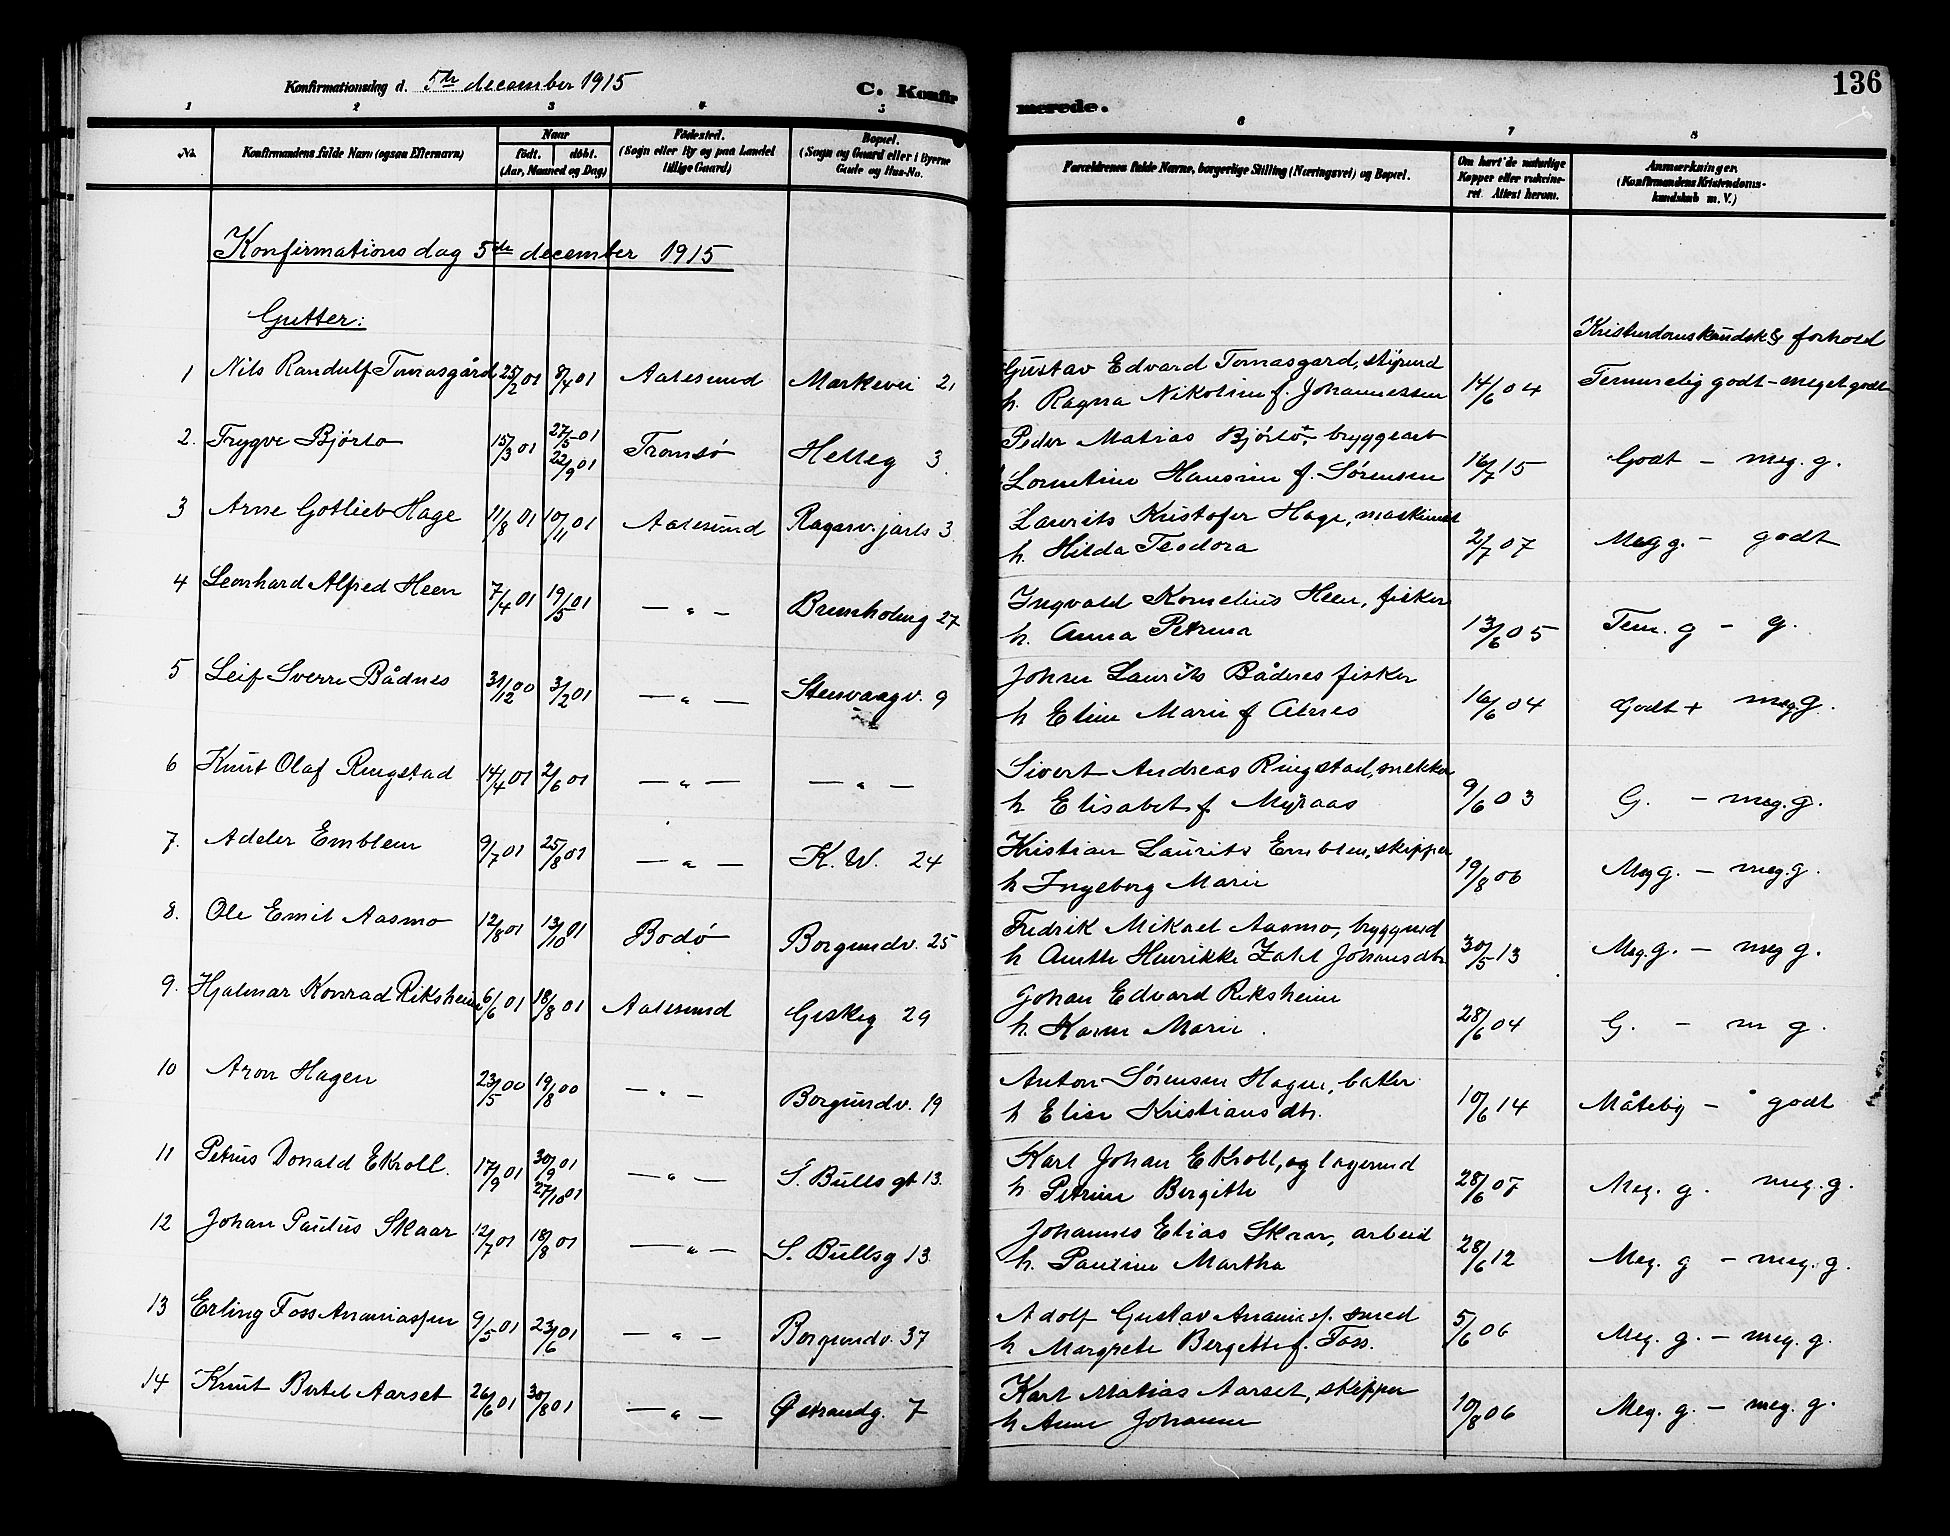 Konfirmationsdag d. 5te december 1915 C. Konfirmerede. 136
1 2 3 4 5 6 7 8
No. Konfirmandens fulde Navn (ogsaa Efternavn) Naar født. døbt. (Aar, Maaned og Dag) Fødested. (Sogn eller By og paa Landet tillige Gaard) Bopæl. (Sogn og Gaard eller i Byerne Gade og Hus-No. Forældrenes fulde Navne, borgerlige Stilling (Næringsvei) og Bopæl. Om havt de naturlige Kopper eller vaksineret. Attest herom. Anmærkninger. (Konfirmandens Kristendomskundskab m. V.)
Konfirmationsdag 5de december 1915
Gutter:
Kristendomskundsk & forhold
1 Nils Randulf Tomasgård 25/2 01 8/4 01 Aalesund Markevei 21 Gustav Edvard Tomasgard, styrmd 14/6 04 Temmelig godt - meget godt
h. Ragna Nikoline f. Johannessen
2. Trygve Bjørlo 15/3 01 27/5 01 22/9 01 Tromsø Helleg 3. Peder Matias Bjørlo, bryggearb 16/7 15 Godt - meg. g.
Hansine f. Sørensen
3 Arne Gotlieb Hage 21/8 01 10/11 01 Aalesund Ragnv. jarls 3. Laurits Kristofer Hage, maskinist 2/7 07 Meg g. - godt
h. Hilda Teodora
4 Leonhard Alfred Heen 7/4 01 19/5 01 — " — Brunholmg 27 Ingvald Kornelius Heen, fisker 13/6 05 Tem. g - g.
h. Anna Petrina
5 Leif Sverre Bådnes 31/12 00 3/2 01 — " — Stenvaagv. 9 Johan Laurits Bådnes fisker 16/6 04 Godt + meg g.
h Eline Marie f Alnes
6 Knut Olaf Ringstad 14/4 01 2/6 01 — " — — " — Sivert Andreas Ringstad, snekker 9/6 03 G. - meg. g.
h Elisabet f. Myraas
7. Adeler Emblem 9/7 01 25/8 01 — " — K. W. 24 Kristian Laurits Emblem, skipper 19/8 06 Meg g. - meg. g.
h Ingeborg Marie
8. Ole Emil Aasmo 12/8 01 13/10 01 Bodø Borgundv. 25 Fredrik Mikael Aasmo, byggmd 30/5 13 Meg. g. - meg g.
h Anette Henrikke Zahl Johansdtr
9. Hjalmar Konrad Riksheim 6/6 01 18/8 01 Aalesund Giskeg 29 Johan Edvard Riksheim 28/6 04 G. - m g.
h. Karen Marie.
10 Aron Hagen 23/5 00 19/8 00 — " — Borgundv. 19 Anton Sørensen Hagen, baker 10/6 14 Måtelig - godt
h Elise Kristiansdtr.
11 Petrus Donald Ekroll. 17/9 01 30/9 01 27/10 01 — " — S. Bullsgt 13. Karl Johan Ekroll, og lagermd 28/6 07 Meg. g. meg. g.
h Petrine Bergithe
12 Johan Paulus Skaar 12/7 01 18/8 01 — " — S. Bullsg 13. Johannes Elias Skaar, arbeid 28/6 12 Meg. g - meg. g.
h. Pauline Martha
13 Erling Foss Ananiassen 9/5 01 23/6 01 — " — Borgundv. 37 Adolf Gustav Ananiasf. smed 5/6 06 Meg. g. - meg. g.
h Margrete Bergette f. Foss.
14 Knut Bertel Aarset 26/6 01 30/8 01 — " — Østrandg. 7 Karl Matias Aarset, skipper 10/8 06 Meg. g. - meg. g.
h Anne Johanne